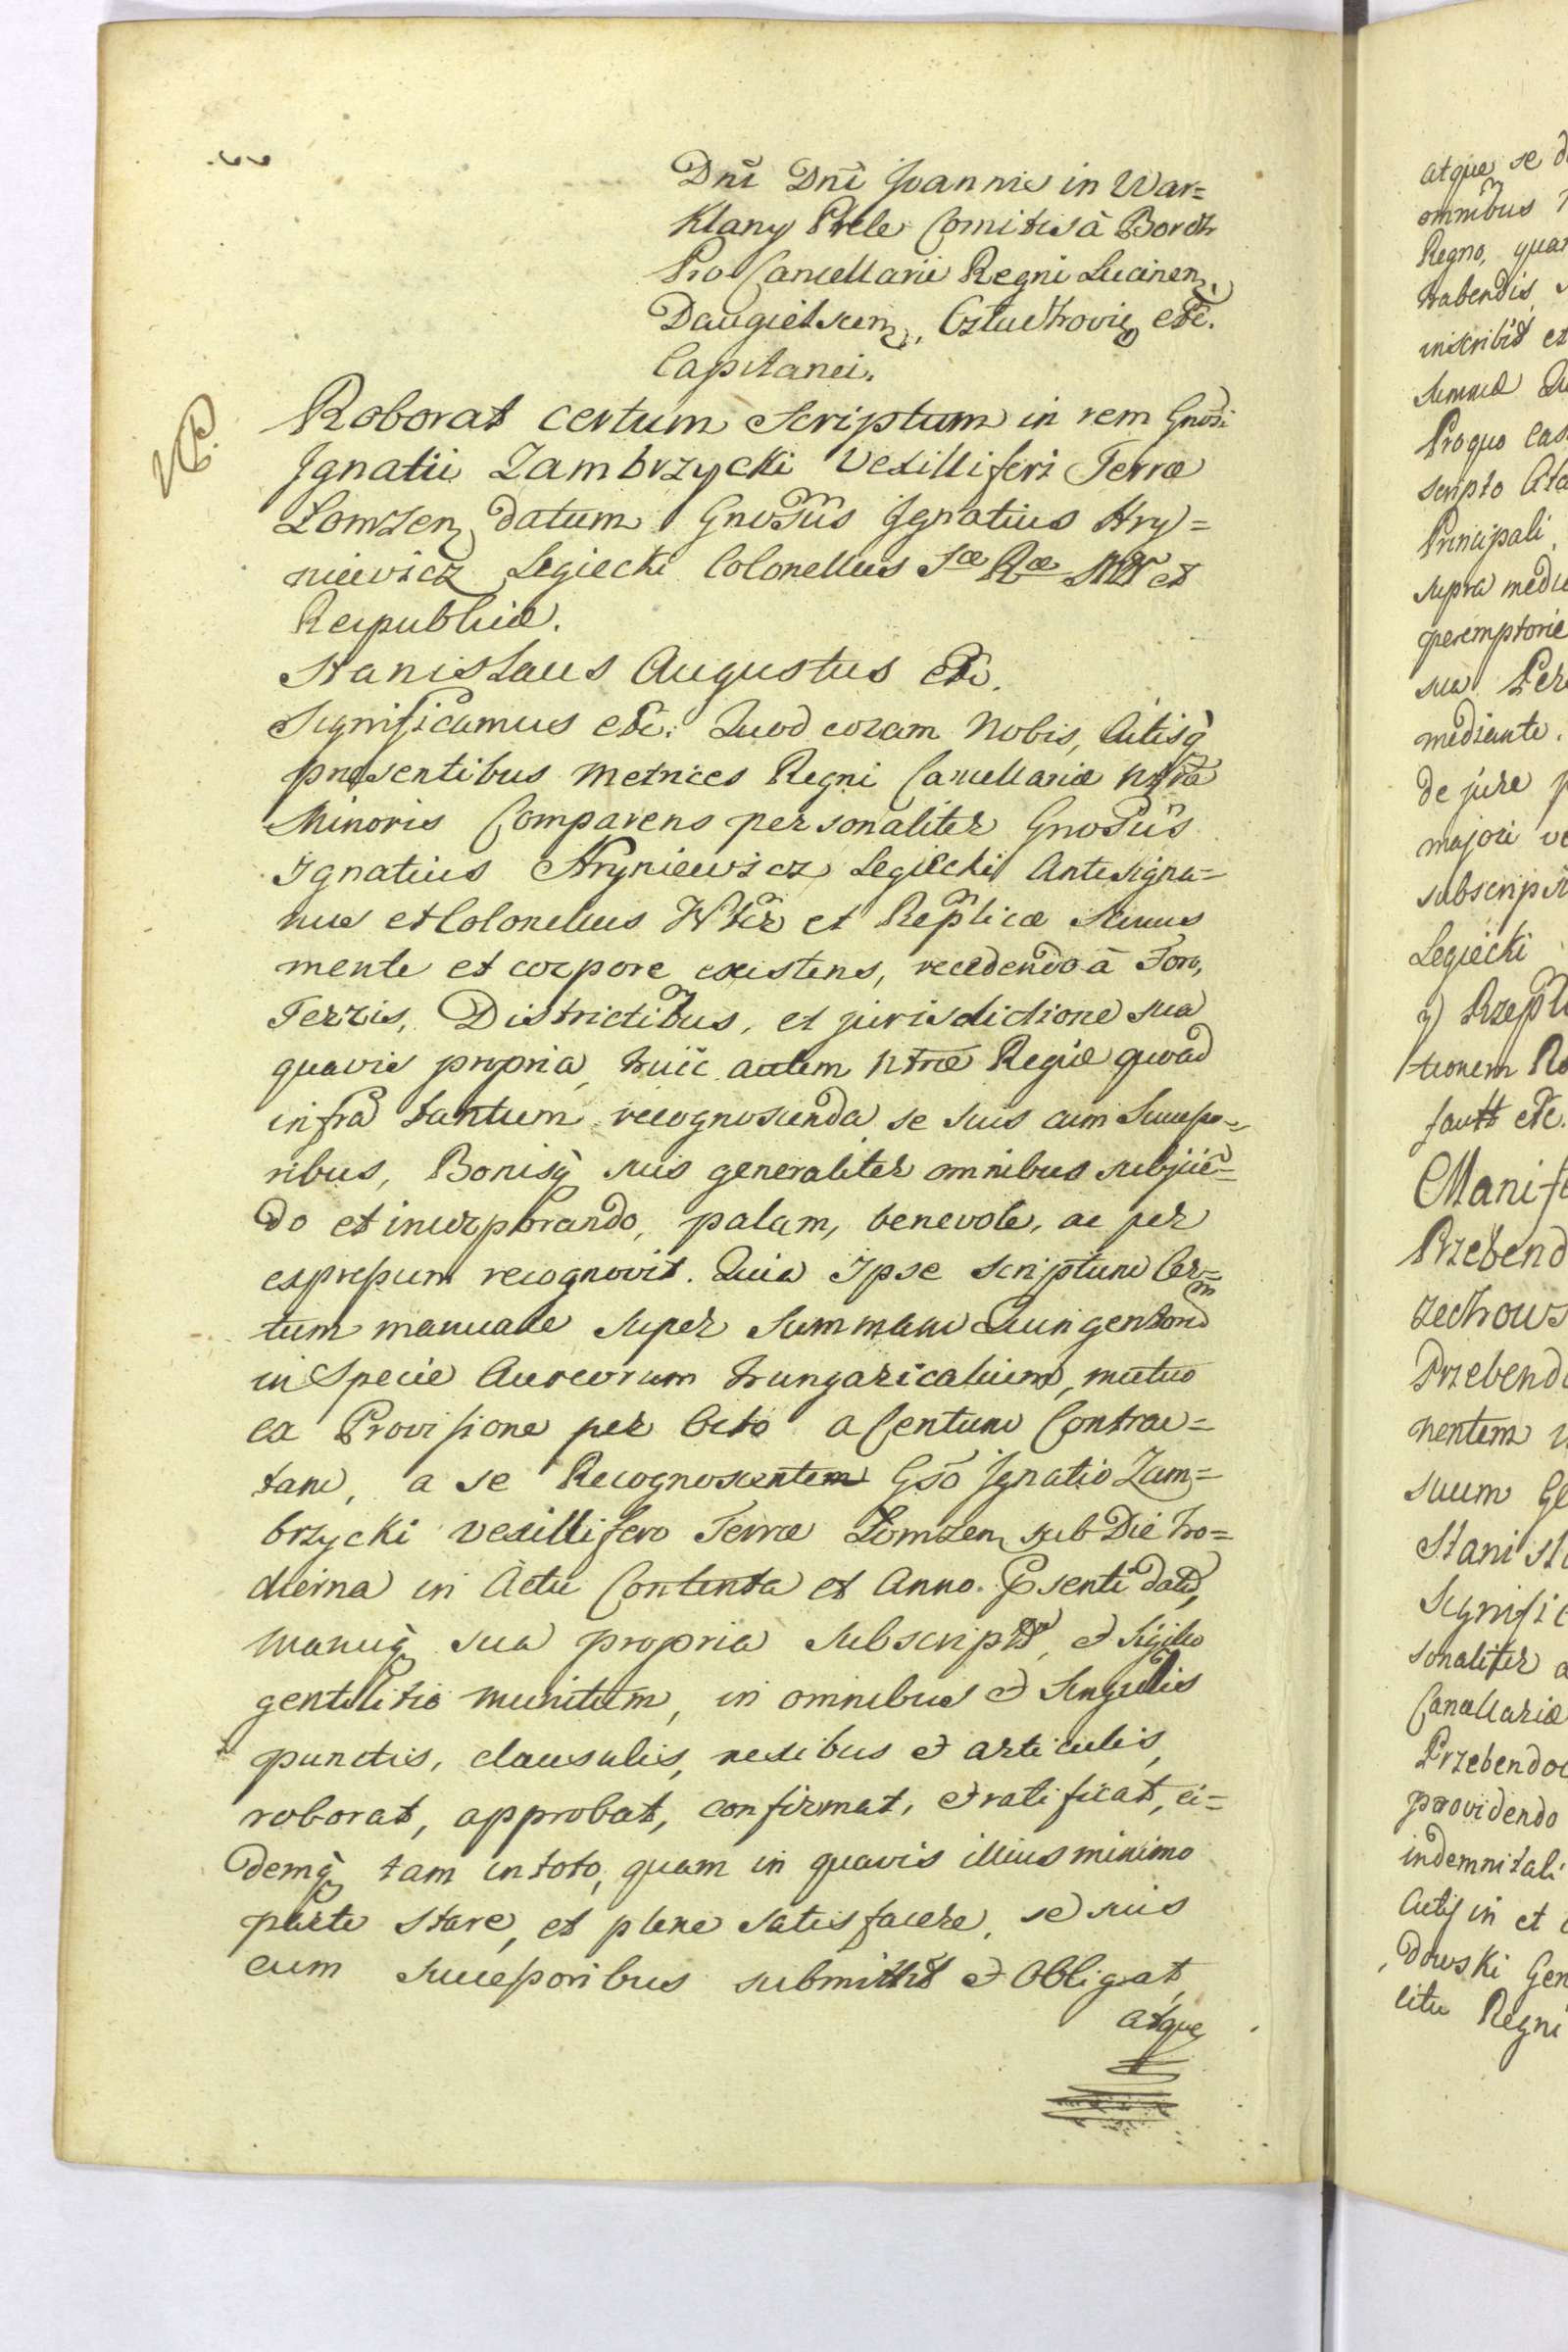 Dnĩ Dnĩ Joannis in War=
Klany Prele Comitis à Borch
Pro Cancellarii Regni Lucinen,
Daugielscen, Ostuchovie etc.
Capitanei.
Roborat certum Scriptum in rem Gnosi
Ignatii Zambrzycki Vexilliferi Terræ
Lomzen, datum Gnosus Ignatius Hry=
niewicz Legiecki Colonellus Sæ Ræ Mtis et
Reipublicæ.
Stanislaus Augustus etc.
Significamus etc. Quod coram Nobis, Actisq̀
præsentibus Metrices Regni Cancellariæ Ntræ
Minoris Comparens personaliter Gnosus
Ignatius Hryniewicz Legiecki Antesigna=
nus et Colonellus et Reiplicæ Sanus
mente et corpore existens, recedendo à Foro,
Terris, Districtibus, et jurisdictione sua
quavis propria, huic autem Ntræ Regiæ quoad
infra tantum recognoscenda se suis cum Successo=
ribus, Bonisq̀ suis generaliter omnibus subjicien=
do et incorporando, palam, benevole, ac per
expressum recognovit. Quia Ipse scriptum Cer=
tum manuale super Summam Quingentorum
in Specie Aureorum hungaricalium, mutuo
ex Provisione per Octo a Centum Contrac=
tam, a se Recognoscentem Gso Ignatio Zam=
brzycki Vexillifero Terræ Lomzen, sub Die ho=
dierna in Actu Contenta et Anno Psenti datũ,
manuq̀ sua propria subscriptũ, et Sigillo
gentilitio munitum, in omnibus et Singulis
punctis, clausulis, nexibus et articulis,
roborat, approbat, confirmat, et ratificat, ei=
demq̀ tam in toto, quam in quavis illius minimo
parte stare, et plene satisfacere, se suis
cum Successoribus submittit et Obligat,
atque
atque se
omnibus
Regno, qua
habendis,
inscribit et
Summæ
Pro quo cas
scripto
Principali
supra
peremptorie
sua
mediante.
de jure
majori
subscrip
Legiecki
tionem
fautt etc.
Manif
Przebend
zechows
Przebend
nentem
suum
Stanis
Signific
sonaliter
Cancellariæ
Przebendo
providendo
indemnitati
Actis in et
dowski Gen
litu Regni